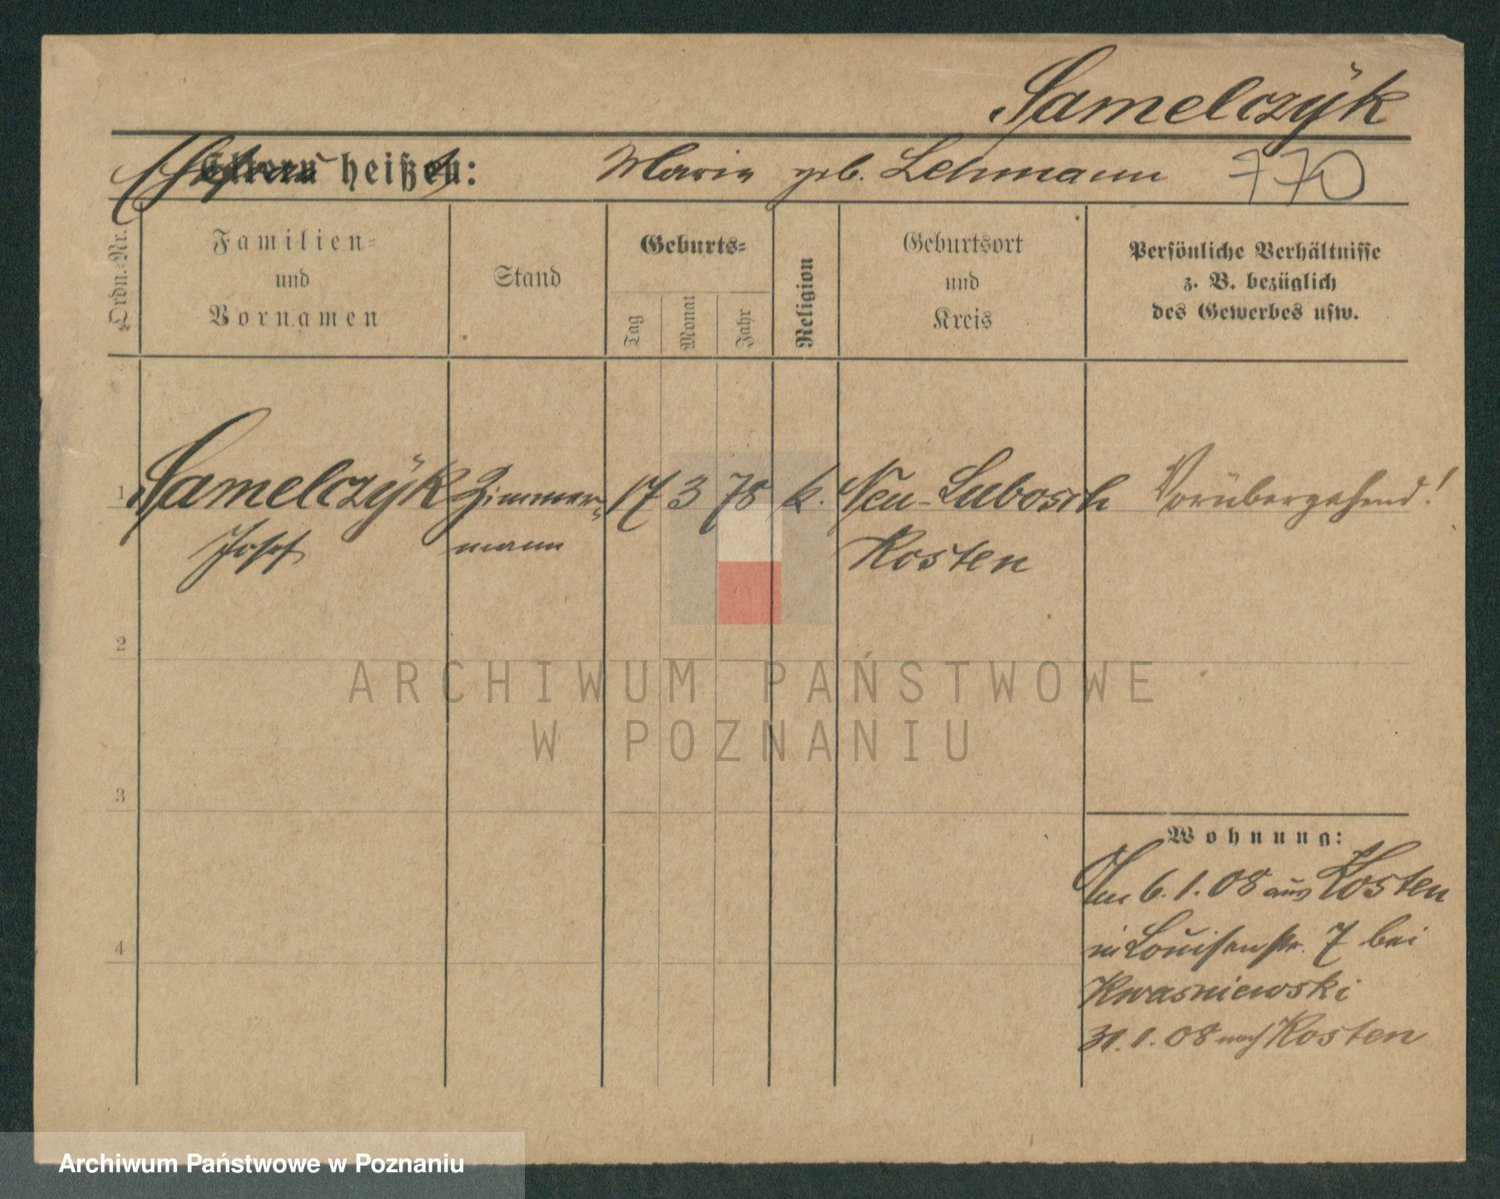 Samelczÿk
Eltern heißen: Maria geb. Lehmann 770
Ordn.-Nr.
Familien-
und
Vornamen
Stand
Geburts-
Tag
Monat
Jahr
Religion
Geburtsort
und
Kreis
Persönliche Verhältnisse
z. B. bezüglich
des Gewerbes usw.
1 Samelczÿk Zimmer- 17 3 78 k. Neu-Lubosch Vorübergehend!
Josef mann Kosten
2
3
4
Wohnung:
Am 6.1.08 aus Kosten
in Louisenstr. 7 bei
Kwasniewski
31.1.08 nach Kosten
ARCHIWUM PAŃSTWOWE
W POZNANIU
Archiwum Państwowe w Poznaniu